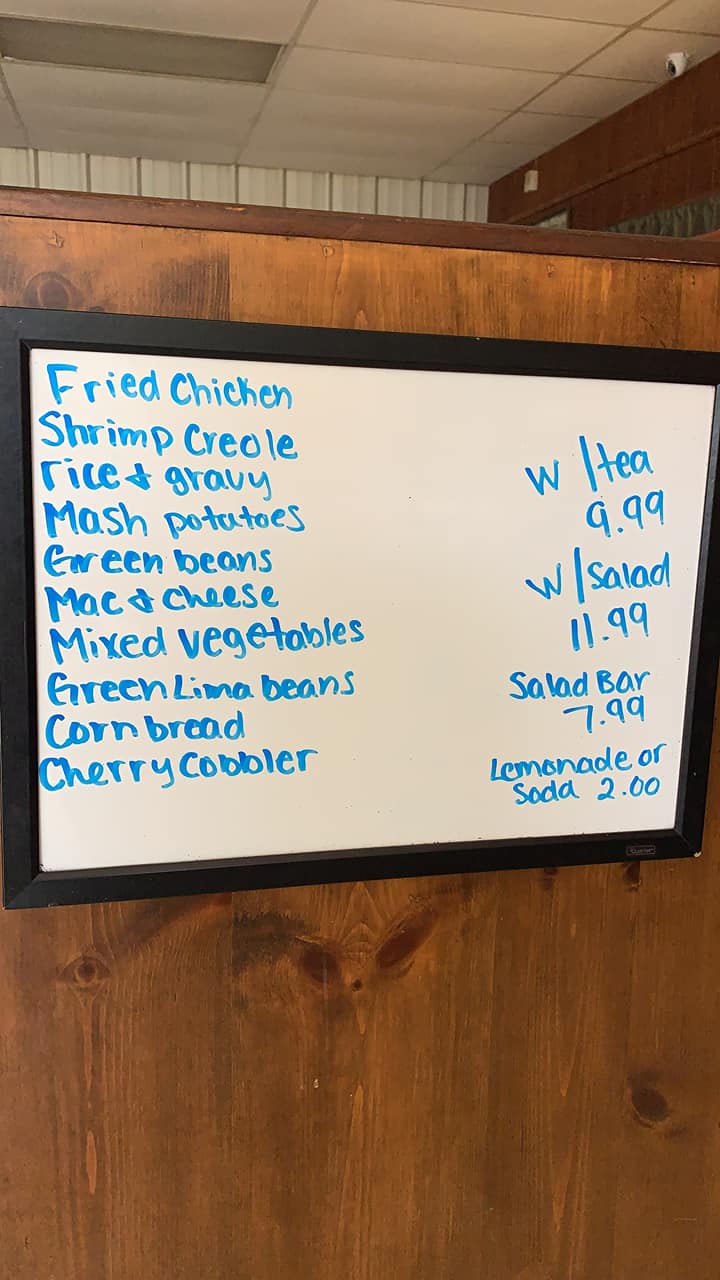 Fried Chicken
Shrimp Creole
rice & gravy
Mash potatoes
Green beans
Mac & cheese
Mixed vegetables
Green Lima beans
Corn bread
Cherry Cobbler
w/tea
9.99
w/salad
11.99
Salad Bar
7.99
Lemonade or
Soda 2.00
Quartet